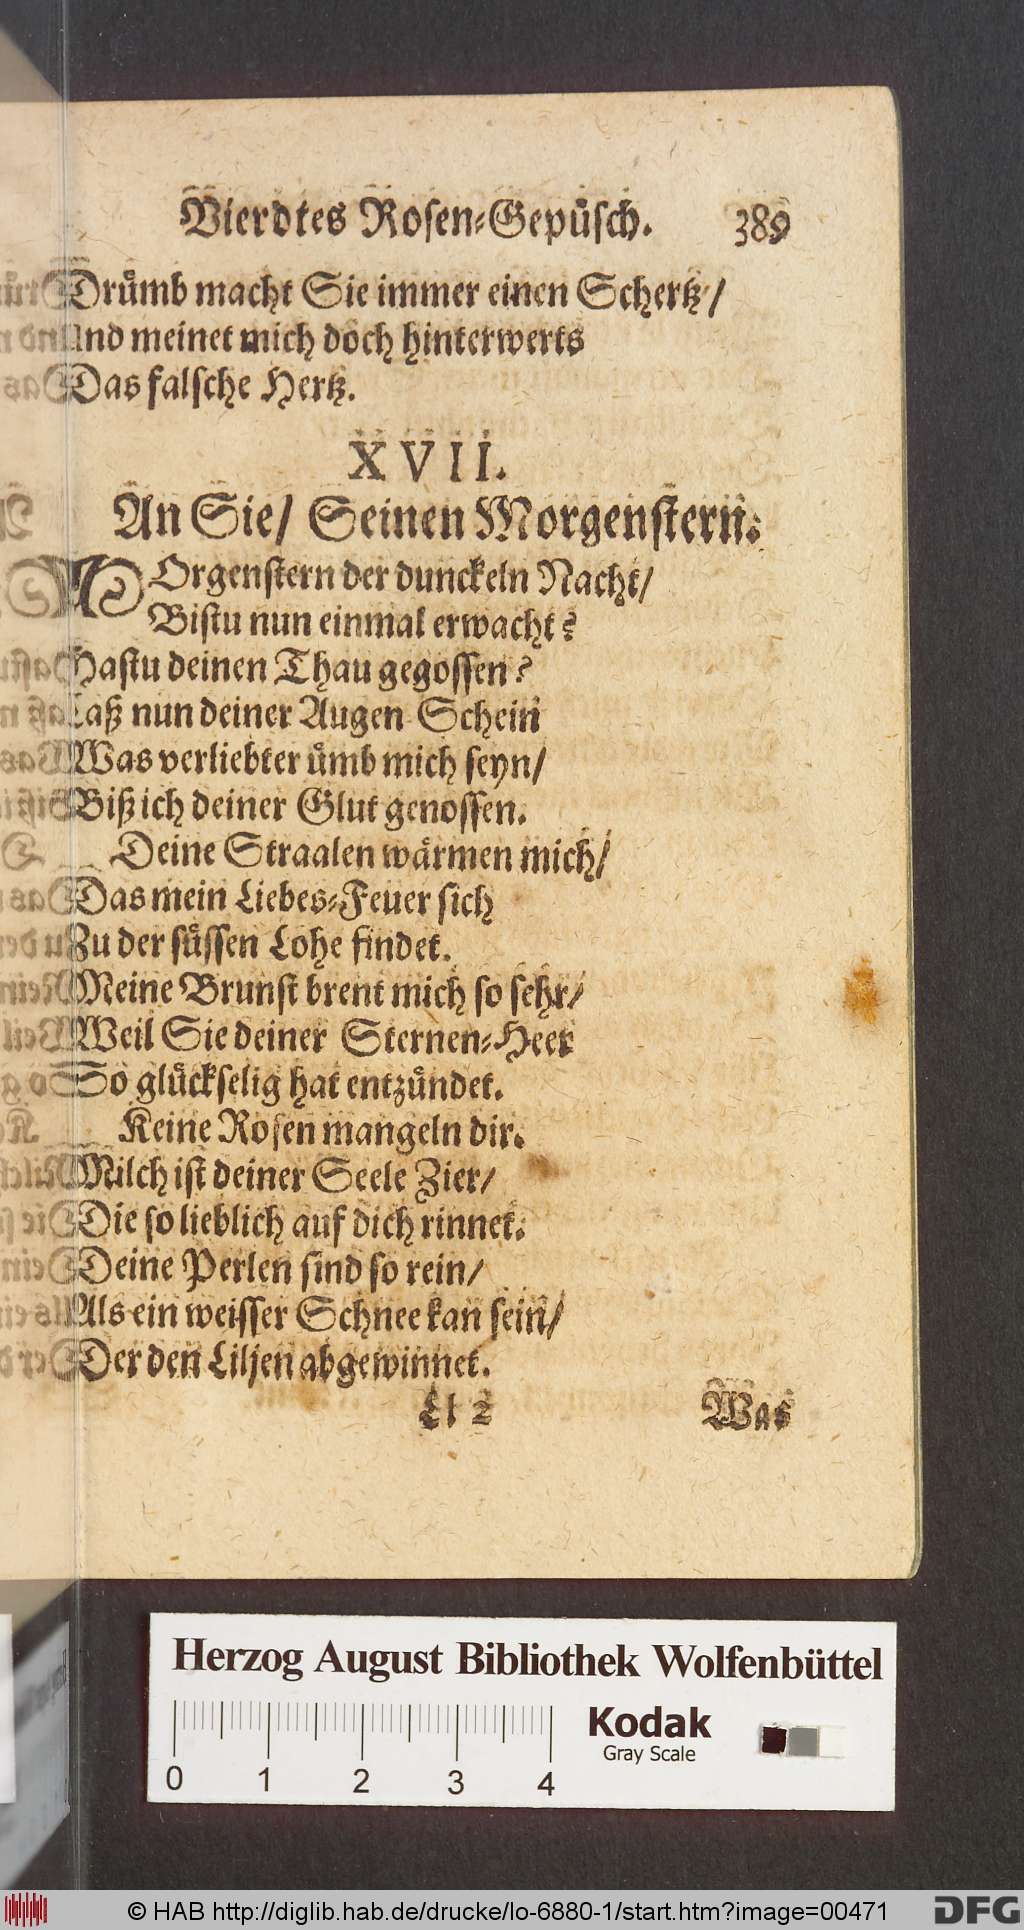 Vierdtes Rosen-Gepüsch. 389
Drümb macht Sie immer einen Schertz/
Und meinet mich doch hinterwerts
Das falsche Hertz.
XVII.
An Sie/ Seinen Morgenstern.
MOrgenstern der dunckeln Nacht/
Bistu nun einmal erwacht?
Hastu deinen Thau gegossen?
Laß nun deiner Augen Schein
Was verliebter ümb mich seyn/
Biß ich deiner Glut genossen.
Deine Straalen wärmen mich/
Das mein Liebes-Feuer sich
Zu der süssen Lohe findet.
Meine Brunst brent mich so sehr/
Weil Sie deiner Sternen-Heer
So glückselig hat entzündet.
Keine Rosen mangeln dir.
Milch ist deiner Seele Zier/
Die so lieblich auf dich rinnet.
Deine Perlen sind so rein/
Als ein weisser Schnee kan sein/
Der den Liljen abgewinnet.
Ll 2 Was
Herzog August Bibliothek Wolfenbüttel
Kodak
Gray Scale
0 1 2 3 4
© HAB http://diglib.hab.de/drucke/lo-6880-1/start.htm?image=00471
DFG